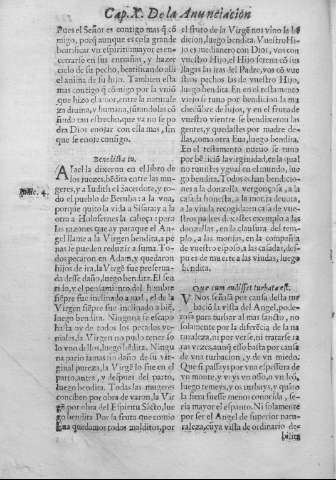 Cap. X. De la Anunciacion
Pues el Señor es contigo mas q̃ cõ
migo, porq̃ aunque es cosa grande
beatificar vn espiritu mayor es en-
cerrarse en sus entrañas, y hazer
de su pecho, beatificando assi
el anima de su hijo. Tambien esta
mas contigo q̃ comigo por la vniõ
que hizo el amor, entre la naturale
za diuina, y humana,
do tan estrecho, que ya no se po
dra Dios enojar con ella mas, sin
que se enoje consigo.
Benedicta tu.
A Iael la dixeron en el libro de
los juezes, bẽdita entre las mu
geres, y a Iudith el Sacerdote, y to-
do el pueblo de Betulia a la vna,
porque quito la vida a Sisara, y a la
otra a Holofernes la cabeça: pero a
las razones que ay para que el An-
gel llame a la Virgen bendita, a pe
nas se pueden reduzir a suma. To-
dos pecaron en Adam, y quedaron
hijos de ira, la Virgẽ fue preserua-
da desse daño, luego bendita. El sen
tido, y el pensamiento del hombre
siẽpre fue inclinado a mal, el de la
Virgen siẽpre fue inclinado a biẽ,
luego bendita. Ninguna se escapo
hasta oy de todos los pecados ve-
niales, la Virgen no pudo tener so
lo vno dellos, luego bẽdita. Ningu
na pario jamas sin daño de su vir-
ginal pureza, la Virgẽ lo fue en el
parto, antes, y despues del parto,
luego bendita. Todas las mugeres
conciben por obra de varon, la Vir
gẽ por obra del Espiritu Sãcto, lue
go bendita Por la fruta que comio
Eua quedamos todos malditos, por
el fruto de la Virgẽ nos vino la bẽ
dicion, luego bendita. Vuestro Hi-
jo es que dio con Dios, vos con
vuestro Hijo, el Hijo le mostro sus
llagas las iras del Padre, vos cõ vue
stros pechos las de vuestro Hijo,
luego bendita. En el testamento
viejo se tuuo por bendicion la mu
chedũbre de hijos, y en el fruto de
vuestro vientre se bendixeron las
gentes, y quedastes por madre de-
llas, como otra Eua, luego bendita.
En el testamento nueuo se tuuo
por bẽdiciõ la virginidad, en la qual
no tuuistes ygual en el mundo, lue
go bendita. Todos echan bendicio-
nes a la donzella vergonçosa, a la
casada honesta, a la monja deuota,
a la viuda recogida en casa de vue
stros padres distes exemplo a las
donzellas, en la clausura del tem-
plo, a las monjas, en la compañia
de vuestro esposo, a las casadas, des-
pues de muerte, a las viudas, luego
bendita.
Quæ cum audisset turbata est.
VNos señalã por causa desta tur
baciõ la vista del Angel, pode-
rosa para turbar al mas santo, no
solamente por la diferẽcia de la na
turaleza, ni por verse, ni tratarse ra
ras vezes, aunq̃ esso basta por causa
de vna turbacion, y de vn miedo.
Que si passays por vna espessura de
vn monte, y veys vn osso, vn leõ,
luego temeys, y os turbays, y quiça
si la fiera fuesse menos conocida, se-
ria mayor el espanto. Ni solamente
por ser el Angel de superior natu-
raleza, cuya vista de ordinario de-
bilita